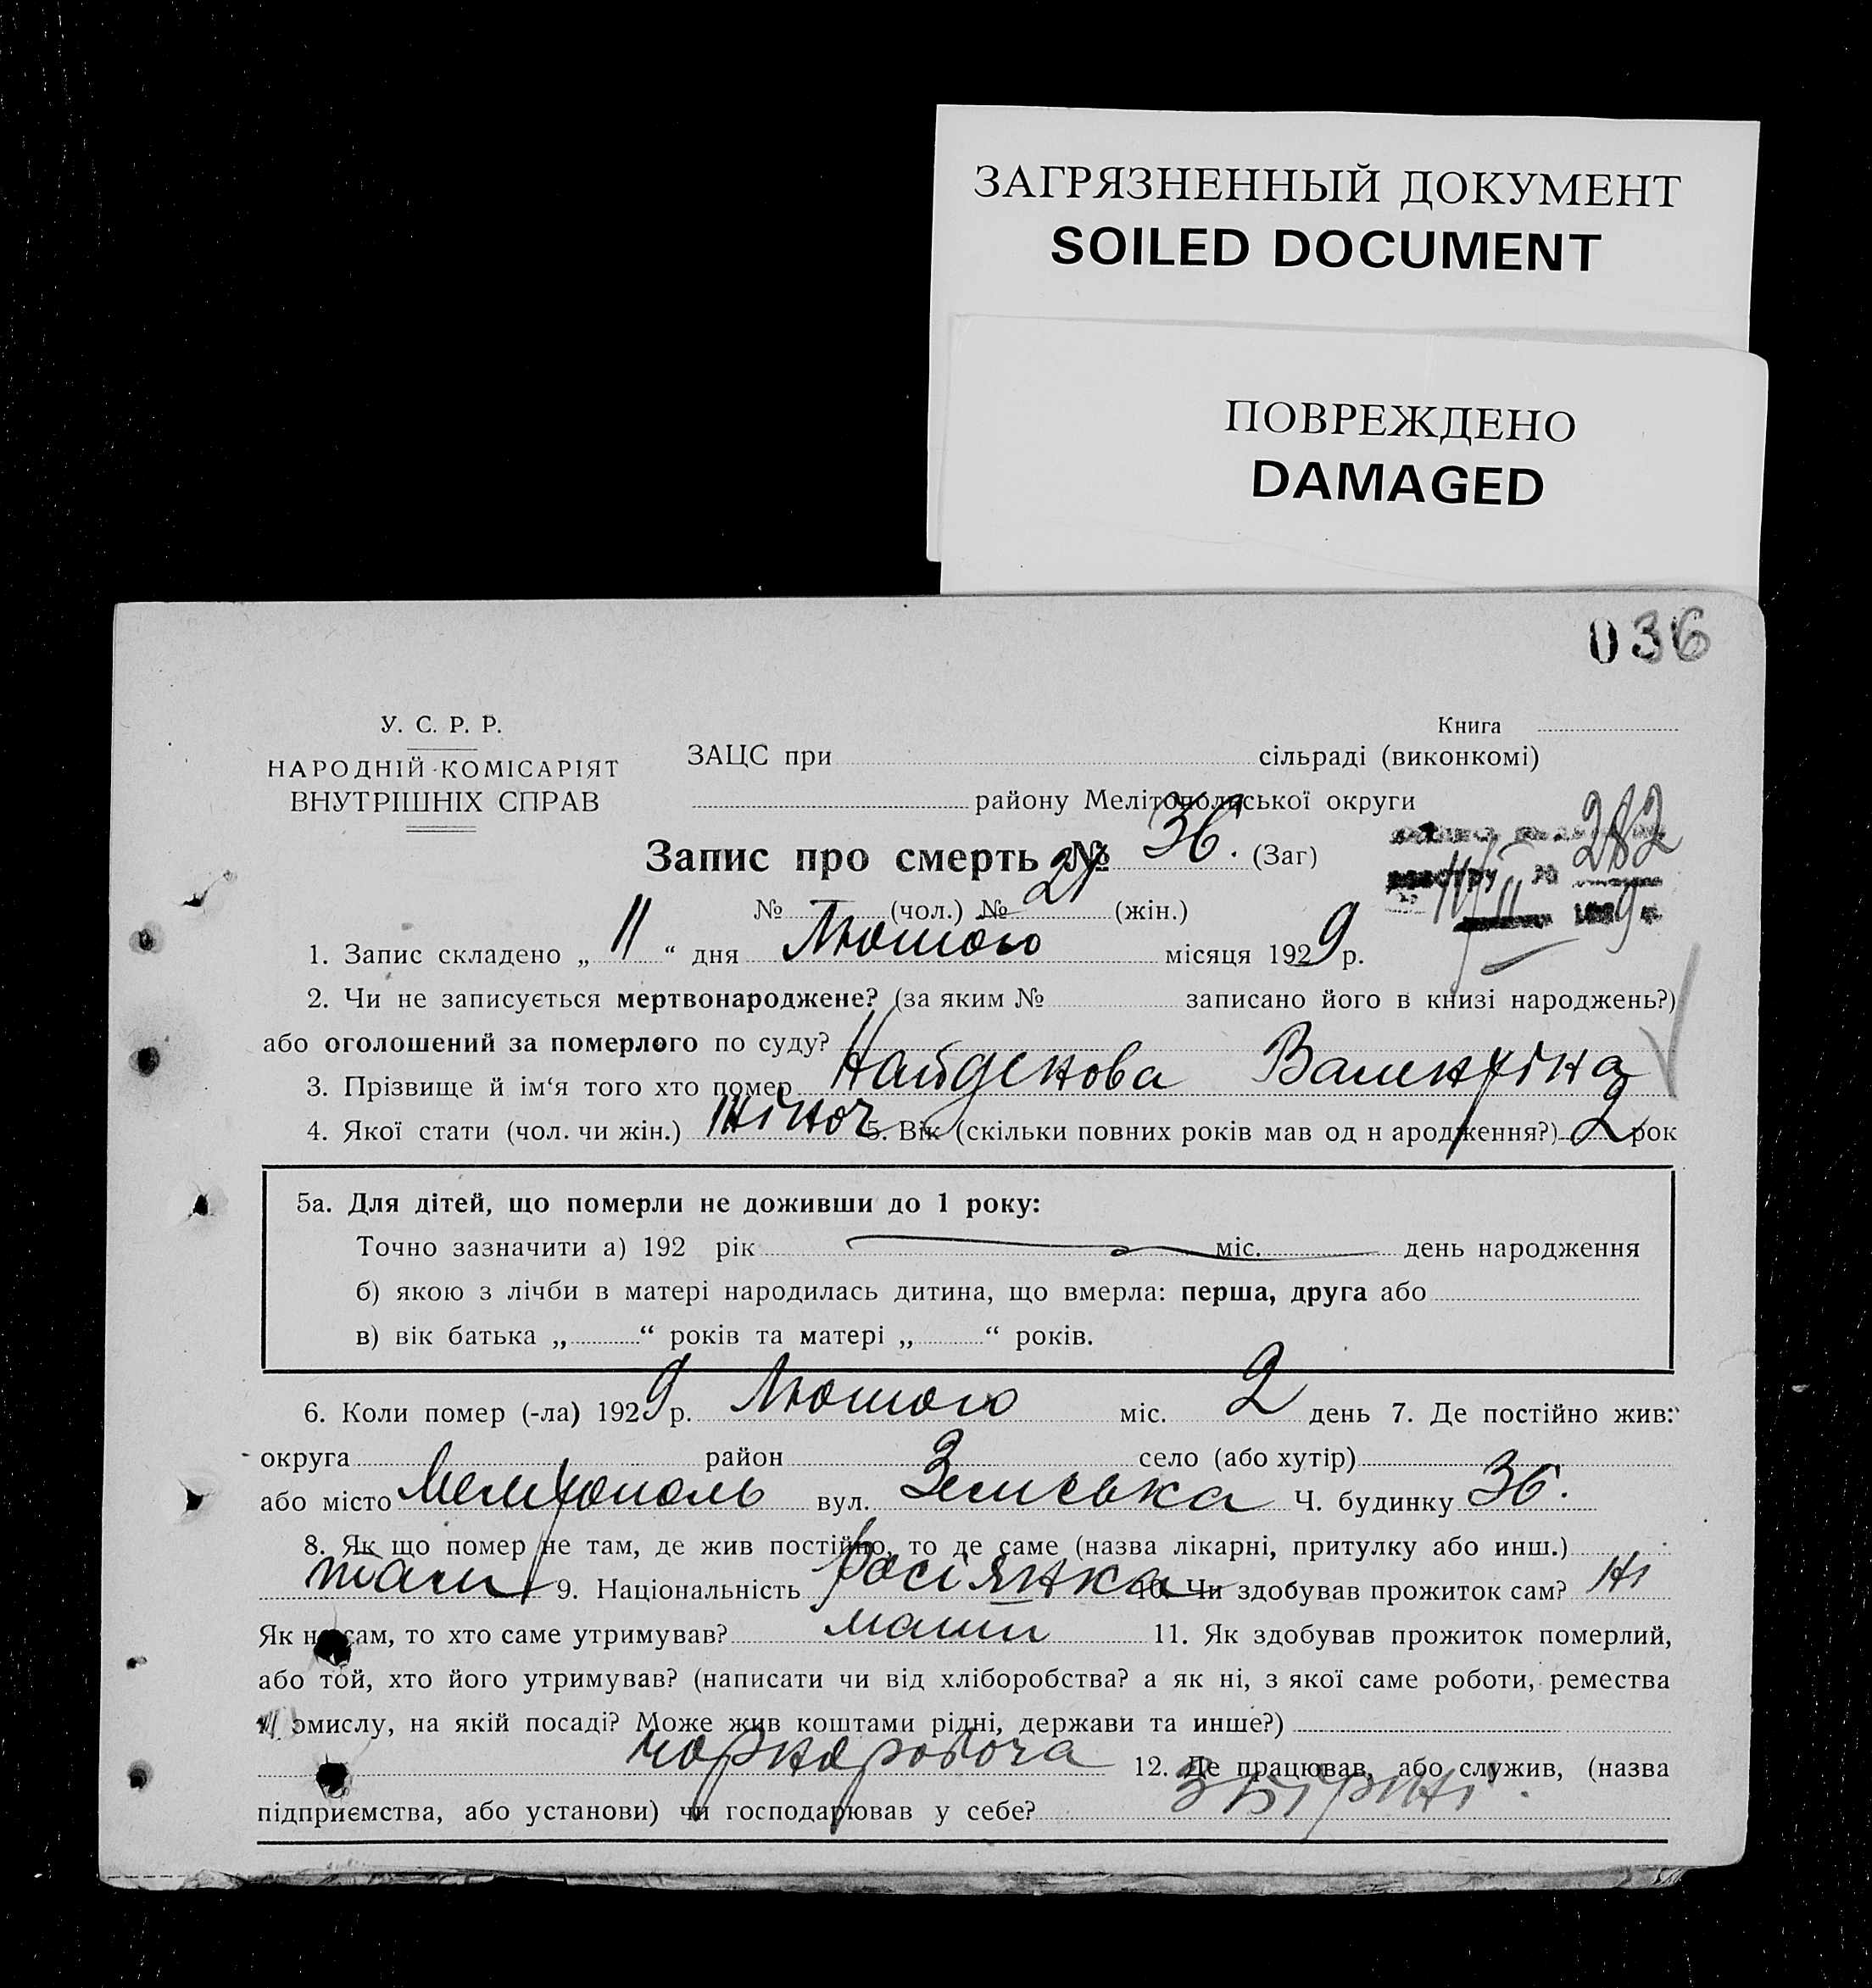 ЗАГРЯЗНЕННЫЙ ДОКУМЕНТ
SOILED DOCUMENT
ПОВРЕЖДЕНО
DAMAGED
036
У. С. Р. Р.
НАРОДНІЙ КОМІСАРІЯТ
ВНУТРІШНІХ СПРАВ
Книга
ЗАЦС при сільраді (виконкомі)
району Мелітопольської округи
282
Запис про смерть № 36. (Заг)
№ (чол.) № 21 (жін.)
1. Запис складено „ 11 “ дня Лютого місяця 1929 р.
2. Чи не записується мертвонароджене? (за яким № записано його в книзі народжень?)
або оголошений за померлого по суду?
3. Прізвище й ім‘я того хто помер Найденова Валентіна
4. Якої стати (чол. чи жін.) жіноч 5. Вік (скільки повних років мав од н ародження?) 2 рок
5а. Для дітей, що померли не доживши до 1 року:
Точно зазначити а) 192 рік міс. день народження
б) якою з лічби в матері народилась дитина, що вмерла: перша, друга або
в) вік батька „ “ років та матері „ “ років.
6. Коли помер (-ла) 1929 р. Лютого міс. 2 день 7. Де постійно жив:
округа район село (або хутір)
або місто Мелітополь вул. Земська Ч. будинку 36.
8. Як що помер не там, де жив постійно, то де саме (назва лікарні, притулку або инш.)
там 9. Національність росіянка 10. Чи здобував прожиток сам? Ні
Як не сам, то хто саме утримував? мати 11. Як здобував прожиток померлий,
або той, хто його утримував? (написати чи від хліборобства? а як ні, з якої саме роботи, ремества
омислу, на якій посаді? Може жив коштами рідні, держави та инше?)
чорнороboча 12. Де працював, або служив, (назва
підприємства, або установи) чи господарював у себе?